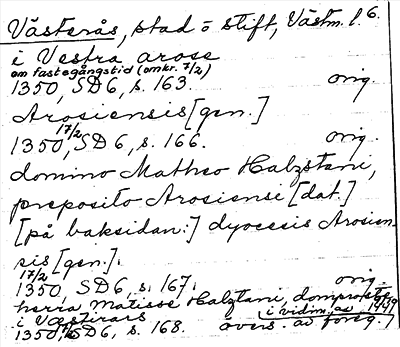 Västerås, stad o stift, Västm. l. 6.
i Vestra arose
om fastegångstid (omkr. 7/2)
1350, SD 6, s. 163. orig.
Arosiensis [gen.]
1350, 17/2, SD 6, s. 166. orig.
domino Matheo Halzstani,
preposito Arosiensi [dat.]
[på baksidan:] dyocesis Arosien-
sis [gen.].
1350, 17/2, SD 6, s. 167. orig.
herra Matisse Halztani, domprost
i Væstirars (i vidim. av 1449)
1350, SD 6, s. 168. övers. av föreg.